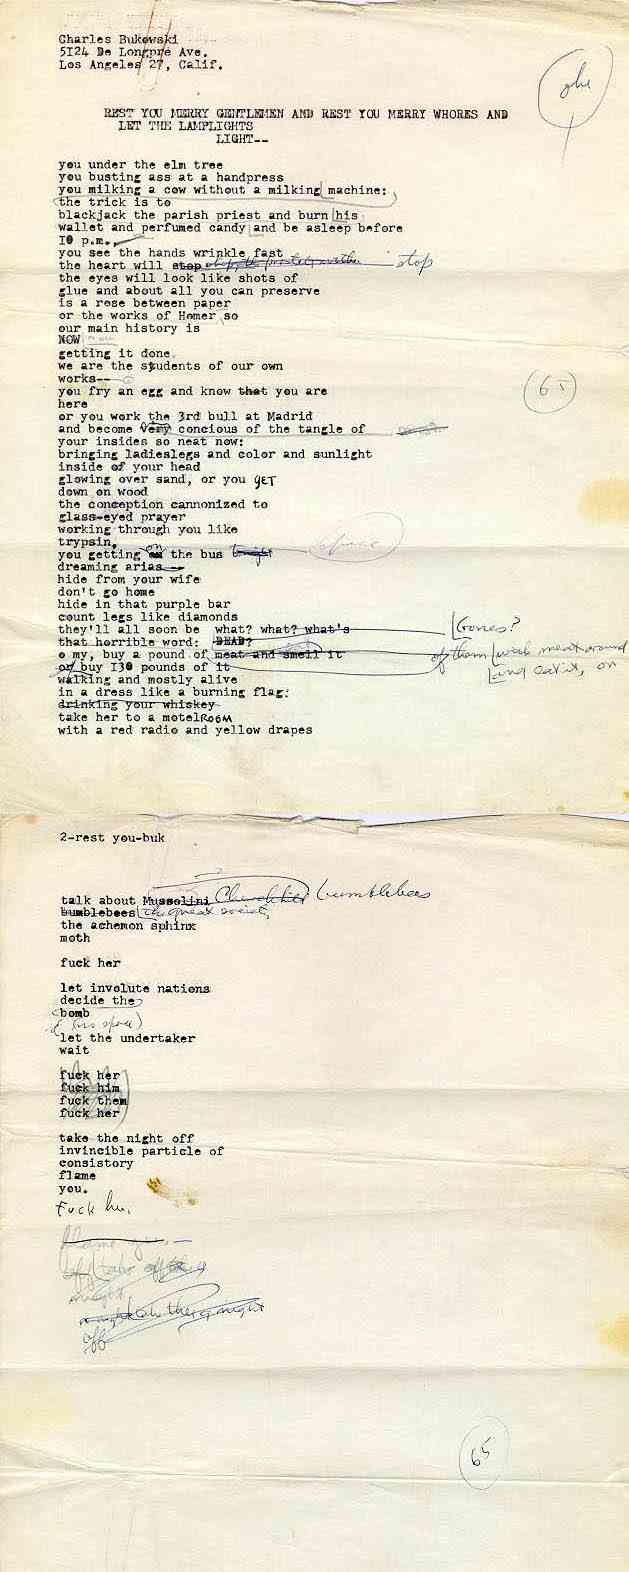 Charles Bukowski
5I24 De Longpre Ave.
Los Angeles 27, Calif.
REST YOU MERRY GENTLEMEN AND REST YOU MERRY WHORES AND
LET THE LAMPLIGHTS
LIGHT--
you under the elm tree
you busting ass at a handpress
you milking a cow without a milking machine:
the trick is to
blackjack the parish priest and burn his
wallet and perfumed candy and be asleep before
I0 p.m.
you see the hands wrinkle fast
the heart will stop stop
the eyes will look like shots of
glue and about all you can preserve
is a rose between paper
or the works of Homer so
our main history is
NOW
getting it done
we are the students of our own
works--
you fry an egg and know that you are
here
(65)
or you work the 3rd bull at Madrid
and become very concious of the tangle of
your insides so neat now:
bringing ladieslegs and color and sunlight
inside of your head
glowing over sand, or you GET
down on wood
the conception cannonized to
glass-eyed prayer
working through you like
trypsin,
you getting on the bus tonight
dreaming arias--
hide from your wife
don't go home
hide in that purple bar
count legs like diamonds
they'll all soon be what? what? what's
Bones?
that horrible word: DEAD?
o my, buy a pound of meat and smell it
of them work meat around
and eat it, on
or buy I30 pounds of it
walking and mostly alive
in a dress like a burning flag:
drinking your whiskey
take her to a motel ROOM
with a red radio and yellow drapes
2-rest you-buk
talk about Mussolini Churchill bumblebees
bumblebees the great society
the achemon sphinx
moth
fuck her
let involute nations
decide the
bomb
(this space)
let the undertaker
wait
fuck her
fuck him
fuck them
fuck her
take the night off
invincible particle of
consistory
flame
you.
Fuck her.
off
65